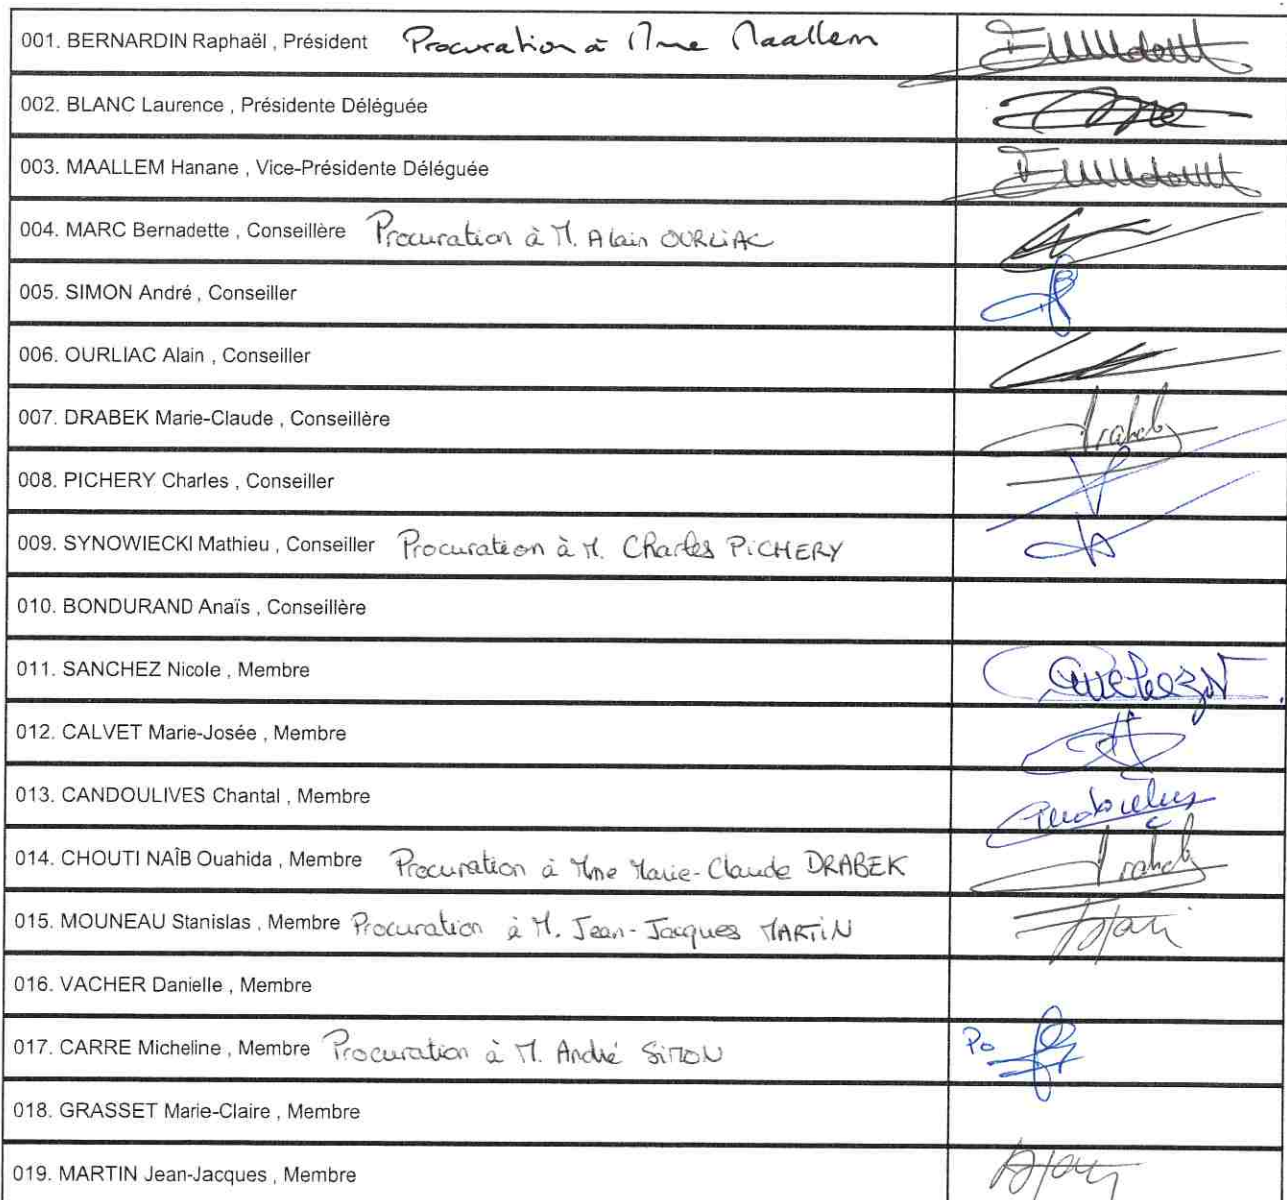 001. BERNARDIN Raphaël , Président Procuration à Mme Maallem
002. BLANC Laurence , Présidente Déléguée
003. MAALLEM Hanane , Vice-Présidente Déléguée
004. MARC Bernadette , Conseillère Procuration à M. Alain OURLIAC
005. SIMON André , Conseiller
006. OURLIAC Alain , Conseiller
007. DRABEK Marie-Claude , Conseillère
008. PICHERY Charles , Conseiller
009. SYNOWIECKI Mathieu , Conseiller Procuration à M. Charles PICHERY
010. BONDURAND Anaïs , Conseillère
011. SANCHEZ Nicole , Membre
012. CALVET Marie-Josée , Membre
013. CANDOULIVES Chantal , Membre
014. CHOUTI NAÎB Ouahida , Membre Procuration à Mme Marie-Claude DRABEK
015. MOUNEAU Stanislas , Membre Procuration à M. Jean-Jacques MARTIN
016. VACHER Danielle , Membre
017. CARRE Micheline , Membre Procuration à M. André SIMON Po
018. GRASSET Marie-Claire , Membre
019. MARTIN Jean-Jacques , Membre